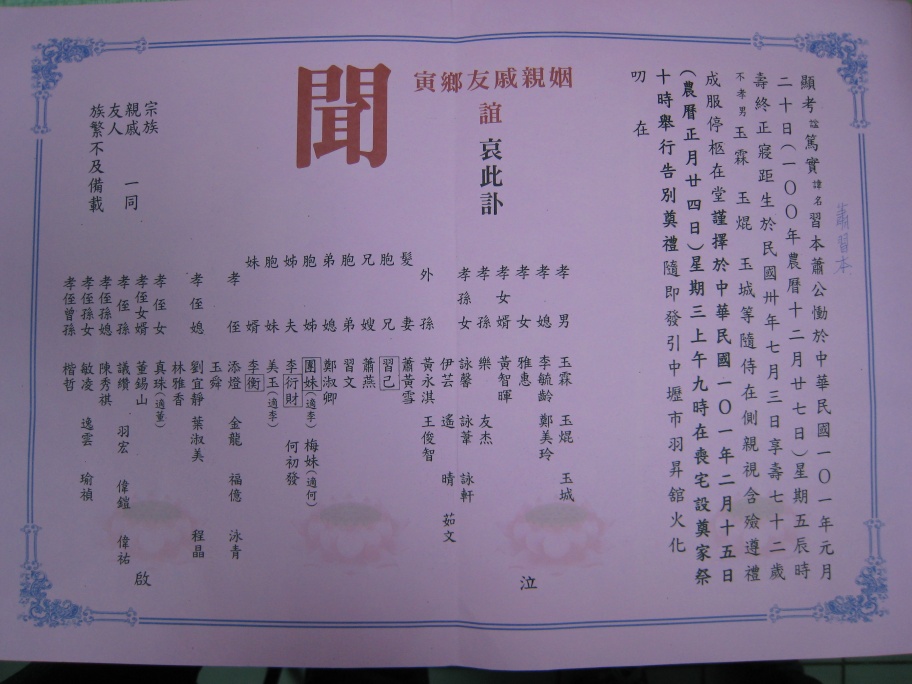 蕭習本
顯考諡篤實諱名習本蕭公慟於中華民國一0一年元月
二十日(一00年農曆十二月廿七日)星期五辰時
壽終正寢距生於民國卅年七月三日享壽七十二歲
不孝男玉霖 玉焜 玉城等隨侍在側親視含殮遵禮
成服停柩在堂謹擇於中華民國一0一年二月十五日
(農曆正月廿四日)星期三上午九時在喪宅設奠家祭
十時舉行告別奠禮隨即發引中壢市羽昇舘火化
叨在
姻親戚友鄉寅
誼 哀此訃
聞
孝男 玉霖 玉焜 玉城
孝媳 李毓齡 鄭美玲
孝女 雅惠
孝女婿 黃智暉
孝孫 樂 友杰
孝孫女 詠馨 詠葦 詠軒
伊芸 遙 晴 茹文
外孫 黃永淇 王俊智
髮妻 蕭黃雪
胞兄 習己
兄嫂 蕭燕
胞弟 習文
弟媳 鄭淑卿
胞姊 團妹(適李) 梅妹(適何)
姊夫 李衍財 何初發
胞妹 美玉(適李)
妹婿 李衡
孝侄 添燈 金龍 福億 泳青
玉舜
孝侄媳 劉宜靜 葉淑美 程晶
林雅香
孝侄女 真珠(適董)
孝侄女婿 董錫山
孝侄孫 議纘 羽宏 偉鎧 偉祐
孝侄孫媳 陳秀祺
孝侄孫女 敏凌 逸雲 瑜禎
孝侄曾孫 楷哲
泣
啟
宗族
親戚 一同
友人
族繁不及備載